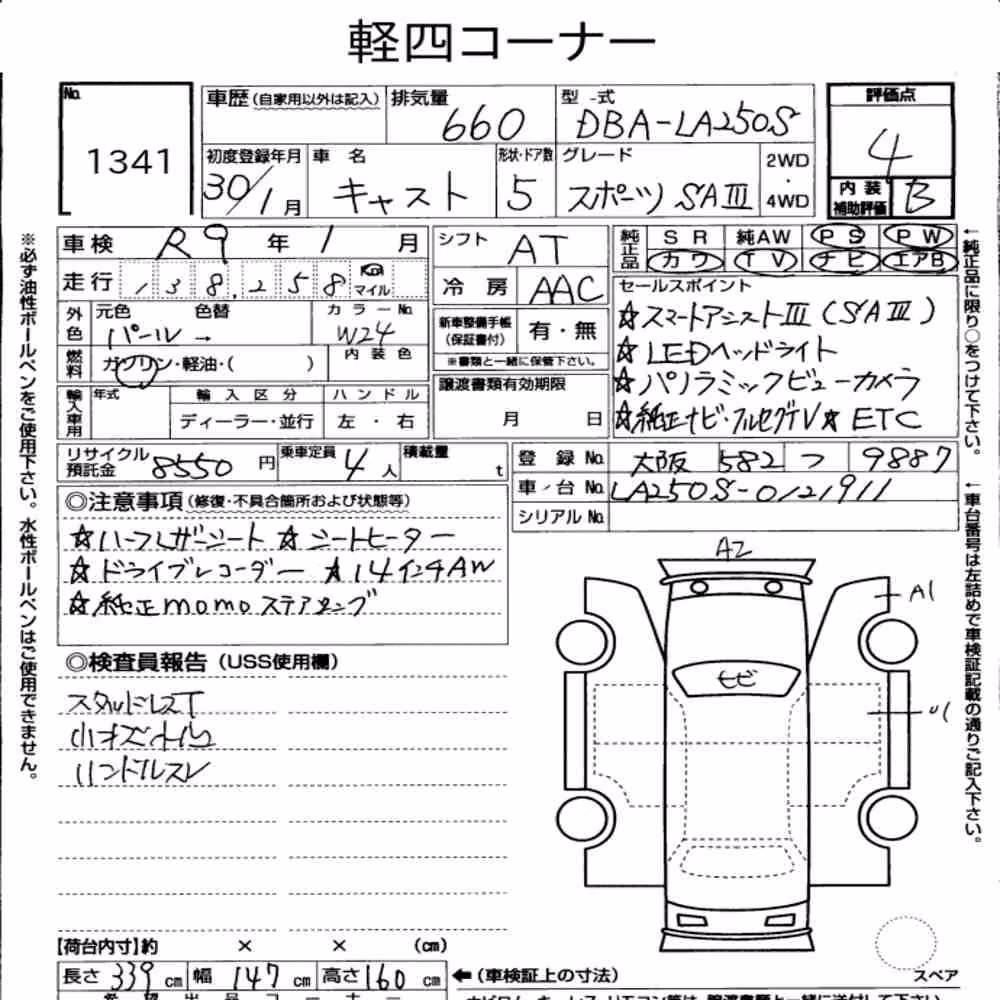 軽四コーナー
No. 1341
車歴 (自家用以外は記入)
排気量 660
型 式 DBA-LA250S
評価点 4
初度登録年月 30/1月
車名 キャスト
形状・ドア数 5
グレード スポーツ SAⅢ
2WD・4WD
内装補助評価 B
車検 R9年 1月
シフト AT
純正品 SR 純AW PS PW
カワ TV ナビ エアB
走行 138,258 Km マイル
冷房 AAC
セールスポイント
☆スマートアシストⅢ(SAⅢ)
☆LEDヘッドライト
☆パノラミックビューカメラ
☆純正ナビ・フルセグTV☆ETC
外色 元色 パール → 色替
カラーNo. W24
新車整備手帳(保証書付) 有・無
※書類と一緒に保管下さい。
燃料 ガソリン・軽油・( )
内装色
譲渡書類有効期限
月 日
輸入車用 年式 輸入区分 ハンドル
ディーラー・並行 左・右
リサイクル預託金 8550円
乗車定員 4人
積載量 t
登録No. 大阪 582 つ 9887
車台No. LA250S-0121911
シリアルNo.
◎注意事項(修復・不具合箇所および状態等)
☆ハーフレザーシート ☆シートヒーター
☆ドライブレコーダー ☆14インチAW
☆純正momoステアリング
◎検査員報告(USS使用欄)
スタッドレスT
小キズ
ハンドルスレ
A2
A1
トビ
【荷台内寸】約 × × (cm)
長さ 339cm 幅 147cm 高さ 160cm
←(車検証上の寸法)
スペア
※必ず油性ボールペンをご使用下さい。水性ボールペンはご使用できません。
←純正品に限り○をつけて下さい。
←車台番号は左詰めで車検証記載の通りご記入下さい。